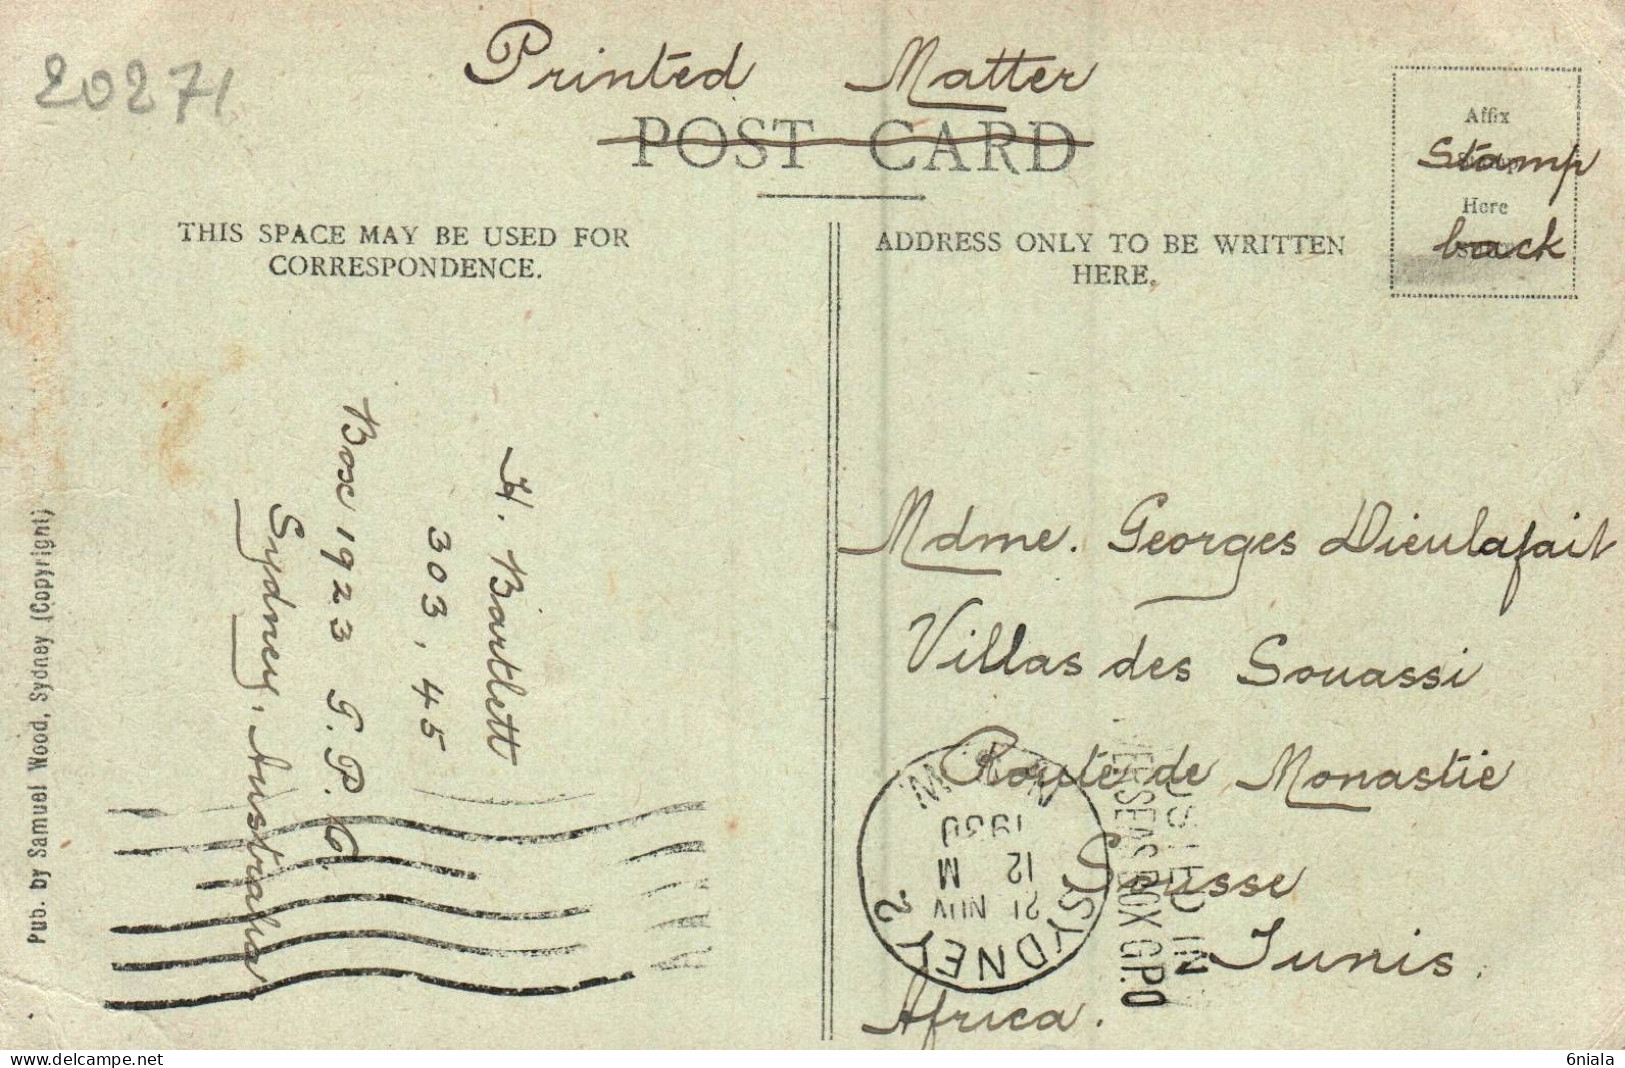 20271
Printed Matter
POST CARD
Affix
Stamp
Here
back
THIS SPACE MAY BE USED FOR
CORRESPONDENCE.
ADDRESS ONLY TO BE WRITTEN
HERE.
H. Bartlett
303, 45
Box 1923 G.P.O.
Sydney, Australia
Pub. by Samuel Wood, Sydney (Copyright)
Mdme. Georges Dieulafait
Villas des Souassi
Route de Monastie
Sousse
Tunis.
Africa.
SYDNEY 2
21 NOV
12 M
1930
POSTED IN
OVERSEAS BOX G.P.O
delcampe.net
6niala